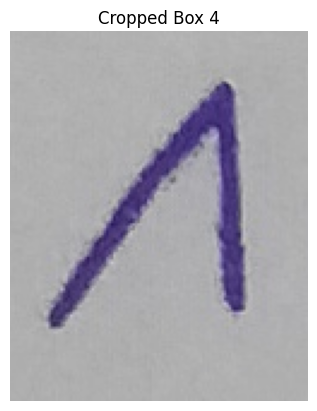 Cropped Box 4